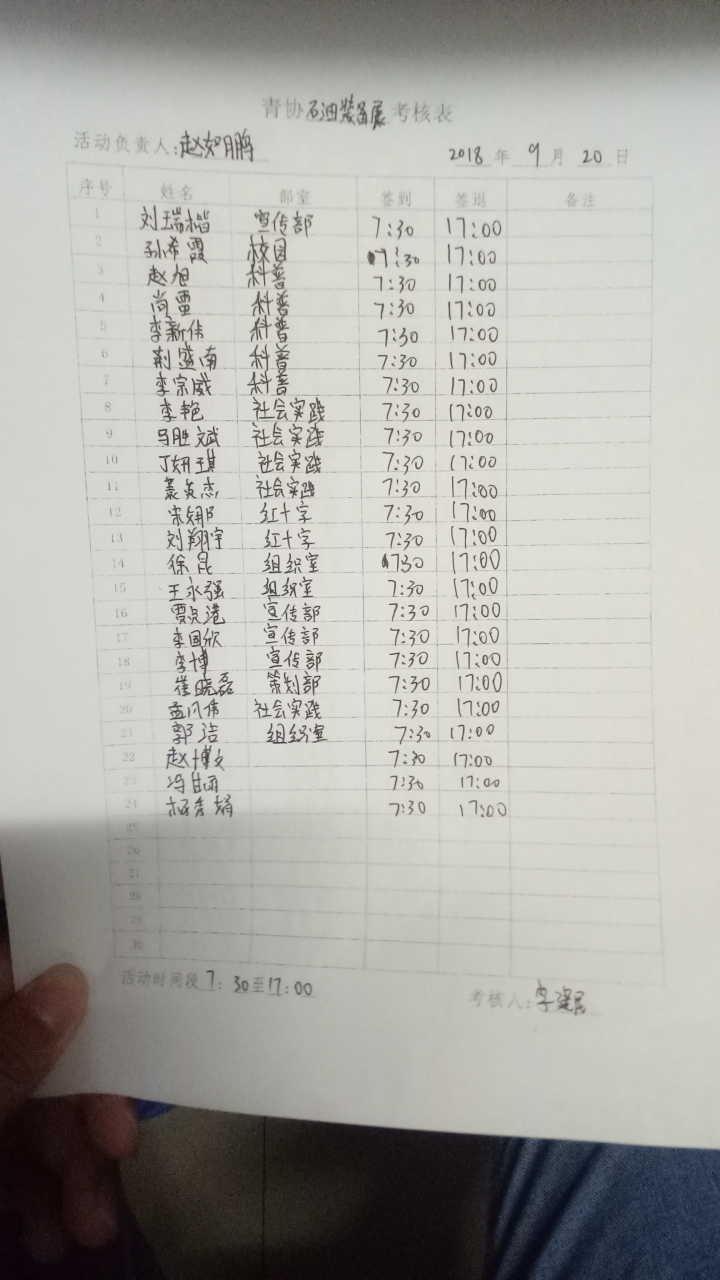 青协石油装备展考核表
活动负责人:赵如鹏 2018年9月20日
序号 姓名 部室 签到 签退 备注
1 刘瑞楷 宣传部 7:30 17:00
2 孙希霞 校园 7:30 17:00
3 赵旭 科普 7:30 17:00
4 尚雷 科普 7:30 17:00
5 李新伟 科普 7:30 17:00
6 荆盛南 科普 7:30 17:00
7 李宗威 科普 7:30 17:00
8 李艳 社会实践 7:30 17:00
9 马胜斌 社会实践 7:30 17:00
10 丁妍琪 社会实践 7:30 17:00
11 杰 社会实践 7:30 17:00
12 宋娜 红十字 7:30 17:00
13 刘翔宇 红十字 7:30 17:00
14 徐昆 组织室 730 17:00
15 王永强 组织室 7:30 17:00
16 贾港 宣传部 7:30 17:00
17 李国欣 宣传部 7:30 17:00
18 李博 宣传部 7:30 17:00
19 崔晓磊 策划部 7:30 17:00
20 孟凡伟 社会实践 7:30 17:00
21 郭洁 组织室 7:30 17:00
22 赵博文 7:30 17:00
23 冯甘雨 7:30 17:00
24 杨秀娟 7:30 17:00
25
26
27
28
29
30
活动时间段7:30至17:00 考核人:李